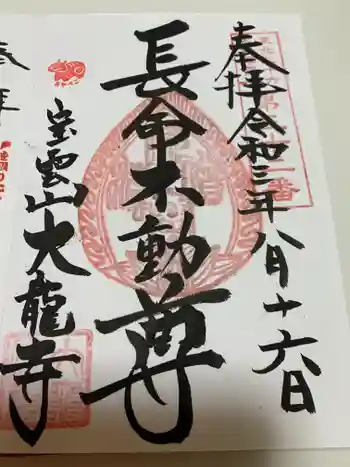 奉拝 令和三年 八月十六日
長命不動尊
宝雲山 大龍寺